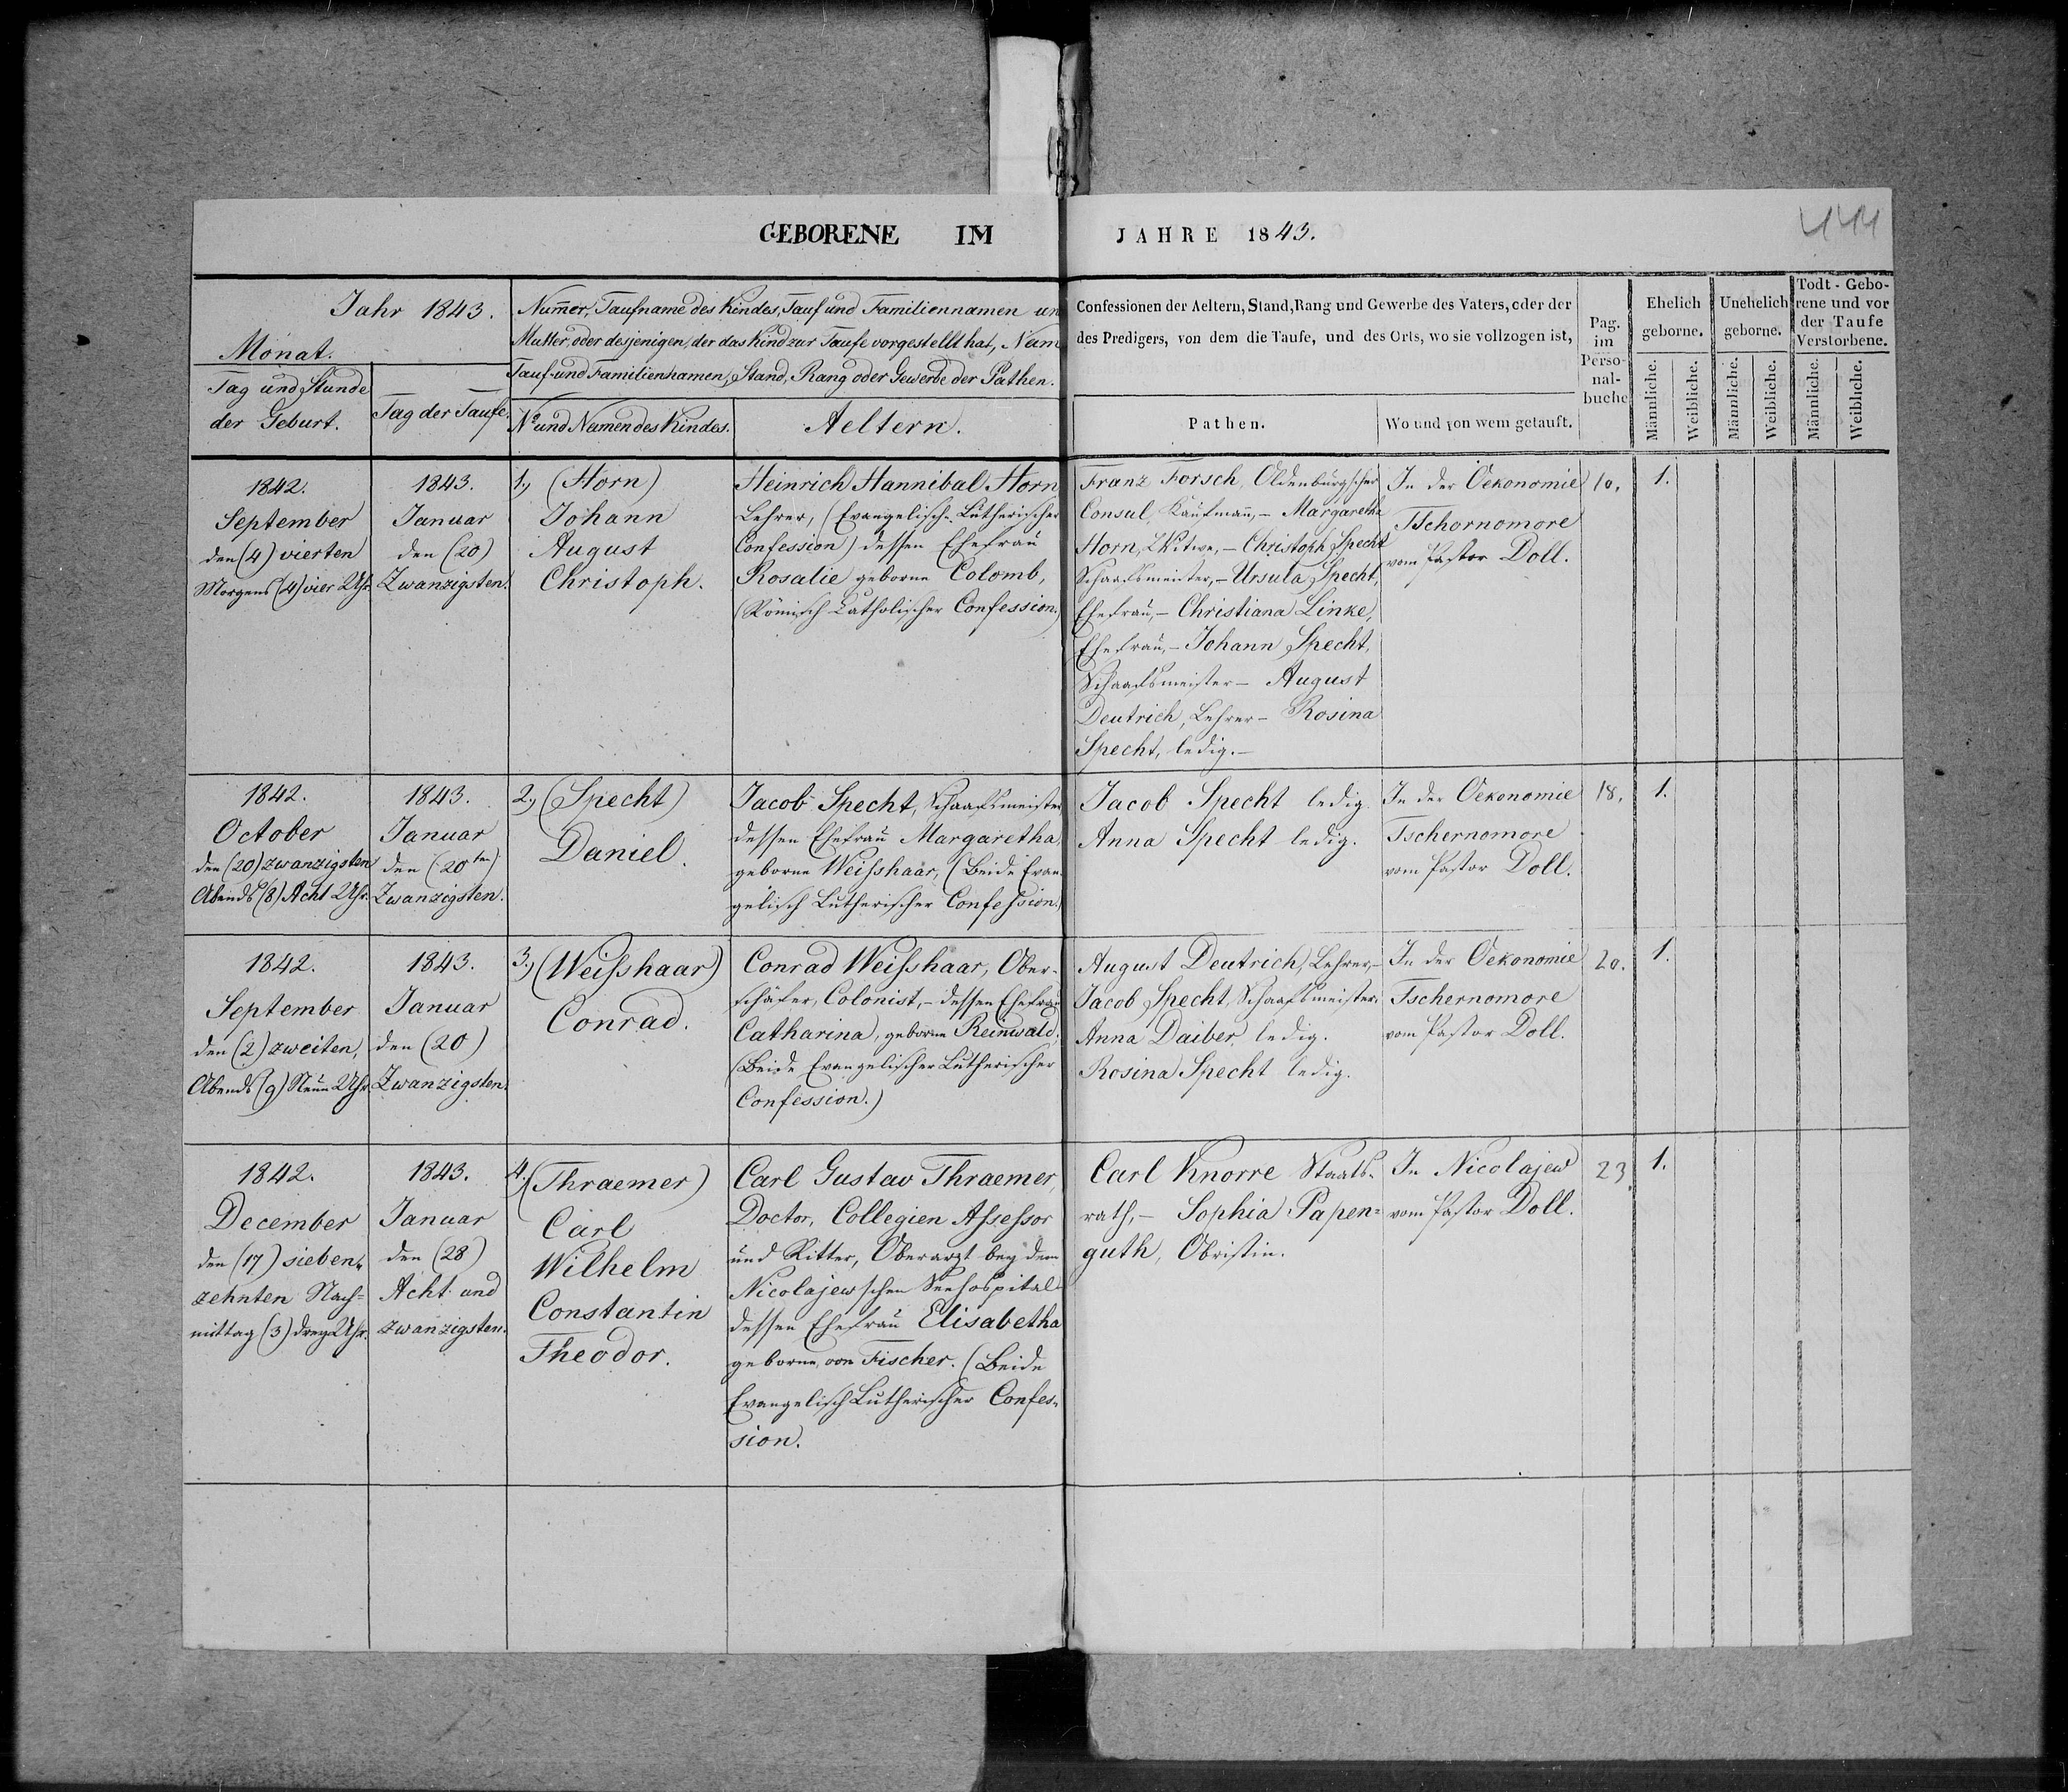 GEBORENE IM JAHRE 1843.
441
Jahr 1843.
Monat.
Tag und Stunde
der Geburt.
Tag der Taufe.
Numer, Taufname des Kindes, Tauf und Familiennamen un
Mutter, oder desjenigen, der das Kind zur Taufe vorgestellt hat, Nam
Tauf- und Familiennamen, Stand, Rang oder Gewerbe der Pathen.
No und Namen des Kindes.
Aeltern.
Confessionen der Aeltern, Stand, Rang und Gewerbe des Vaters, oder der
des Predigers, von dem die Taufe, und des Orts, wo sie vollzogen ist,
Pathen.
Wo und von wem getauft.
Pag.
im
Perso-
nal-
buche
Ehelich
geborne.
Unehelich
geborne.
Todt-Gebo-
rene und vor
der Taufe
Verstorbene.
Männliche.
Weibliche.
Männliche.
Weibliche.
Männliche.
Weibliche.
1842.
September
den (4) vierten
Morgens (4) vier Uhr.
1843.
Januar
den (20)
Zwanzigsten.
1., (Horn)
Johann
August
Christoph.
Heinrich Hannibal Horn
Lehrer, (Evangelisch-Lutherischer
Confession) dessen Ehefrau
Rosalie geborne Colomb,
(Römisch Catholischer Confession.)
Franz Forsch, Oldenburgscher
Consul, Kaufmann, - Margaretha
Horn, Witwe, - Christoph Specht
Schaafsmeister, - Ursula Specht,
Ehefrau, - Christiana Linke,
Ehefrau, - Johann Specht,
Schaafsmeister - August
Deutrich, Lehrer - Rosina
Specht, ledig. -
In der Oekonomie
Tschornomore
vom Pastor Doll.
10.
1.
1842.
October
den (20) zwanzigsten
Abends (8) Acht Uhr.
1843.
Januar
den (20ten)
Zwanzigsten.
2., (Specht)
Daniel.
Jacob Specht, Schaafsmeister
dessen Ehefrau Margaretha
geborne Weisshaar, (Beide Evan-
gelisch Lutherischer Confession.)
Jacob Specht ledig.
Anna Specht ledig.
In der Oekonomie
Tschernomore
vom Pastor Doll.
18.
1.
1842.
September
den (2) zweiten,
Abends (9) Neun Uhr.
1843.
Januar
den (20)
Zwanzigsten.
3., (Weisshaar)
Conrad.
Conrad Weisshaar, Ober-
schäfer, Colonist, - dessen Ehefrau
Catharina, geborne Reinwald;
(Beide Evangelischer Lutherischer
Confession.)
August Deutrich, Lehrer, -
Jacob Specht, Schaafsmeister.
Anna Daiber ledig.
Rosina Specht ledig.
In der Oekonomie
Tschernomore
vom Pastor Doll.
20.
1.
1842.
December
den (17) sieben-
zehnten Nach-
mittag (3) drey Uhr.
1843.
Januar
den (28)
Acht und
zwanzigsten.
4., (Thraemer)
Carl
Wilhelm
Constantin
Theodor.
Carl Gustav Thraemer,
Doctor, Collegien Assessor
und Ritter, Oberarzt bey dem
Nicolajewschen Seehospital
dessen Ehefrau Elisabetha
geborne von Fischer. (Beide
Evangelisch Lutherischer Confes-
sion.
Carl Knorre Staats-
rath, - Sophia Papen-
guth, Obristin.
In Nicolajew
vom Pastor Doll.
23.
1.